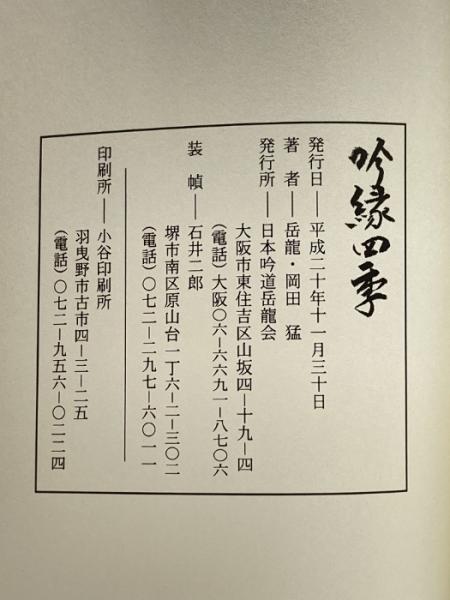 吟縁四季
発行日―平成二十年十一月三十日
著者―岳龍・岡田 猛
発行所―日本吟道岳龍会
大阪市東住吉区山坂四―十九―四
(電話)大阪〇六―六六九一―八七〇六
装幀―石井二郎
堺市南区原山台一丁六―二―三〇二
(電話)〇七二―二九七―六〇一一
印刷所―小谷印刷所
羽曳野市古市四―三―二五
(電話)〇七二―九五六―〇二二四